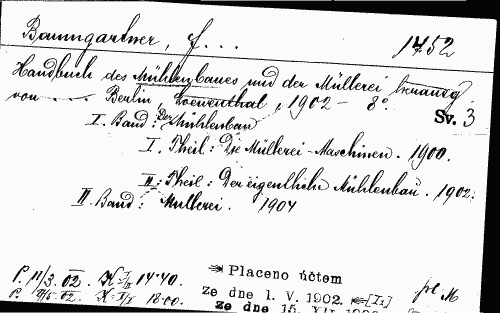 Baumgartner, F...
1452
Handbuch des Mühlenbaues und der Müllerei
von .... Berlin, Loewenthal, 1902 - 8°.
Sv. 3
I. Band: Der Mühlenbau
I. Theil: Die Müllerei-Maschinen. 1900.
II. Theil: Der eigentliche Mühlenbau. 1902.
II. Band: Müllerei. 1904
P. 11/3. 02. K=I/II 14·40.
Placeno účtem
ze dne 1. V. 1902.
ze dne 15. XII